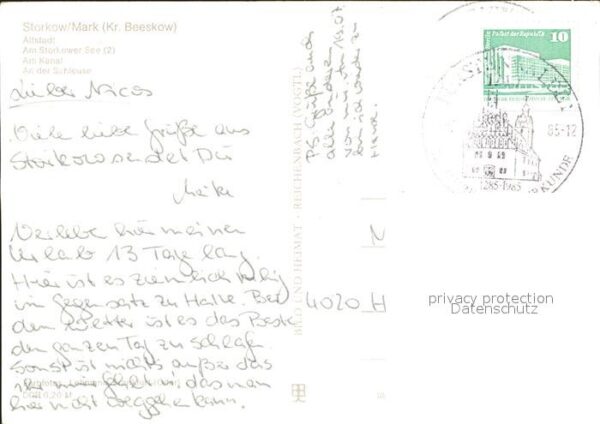 Storkow/Mark (Kr. Beeskow)
Altstadt
Am Storkower See (2)
Am Kanal
An der Schleuse
Lieber Nicos
Viele liebe Grüße aus
Storkow sendet Dir
Meike
Verlebe hier meinen
Urlaub 13 Tage lang.
Hier ist es ziemlich ruhig
im Gegensatz zu Halle. Bei
dem Wetter ist es das Beste
den ganzen Tag zu schlafen
Sonst ist nichts außer das
das man
hier nicht weggehen kann.
DDR 0,20 M
PS Grüße auch
alle anderen
von mir
bin ich wieder zu
Hause.
BILD UND HEIMAT · REICHENBACH (VOGTL)
4020 H
N
Palast der Republik
10
85-12
1285-1985
URKUNDE
privacy protection
Datenschutz